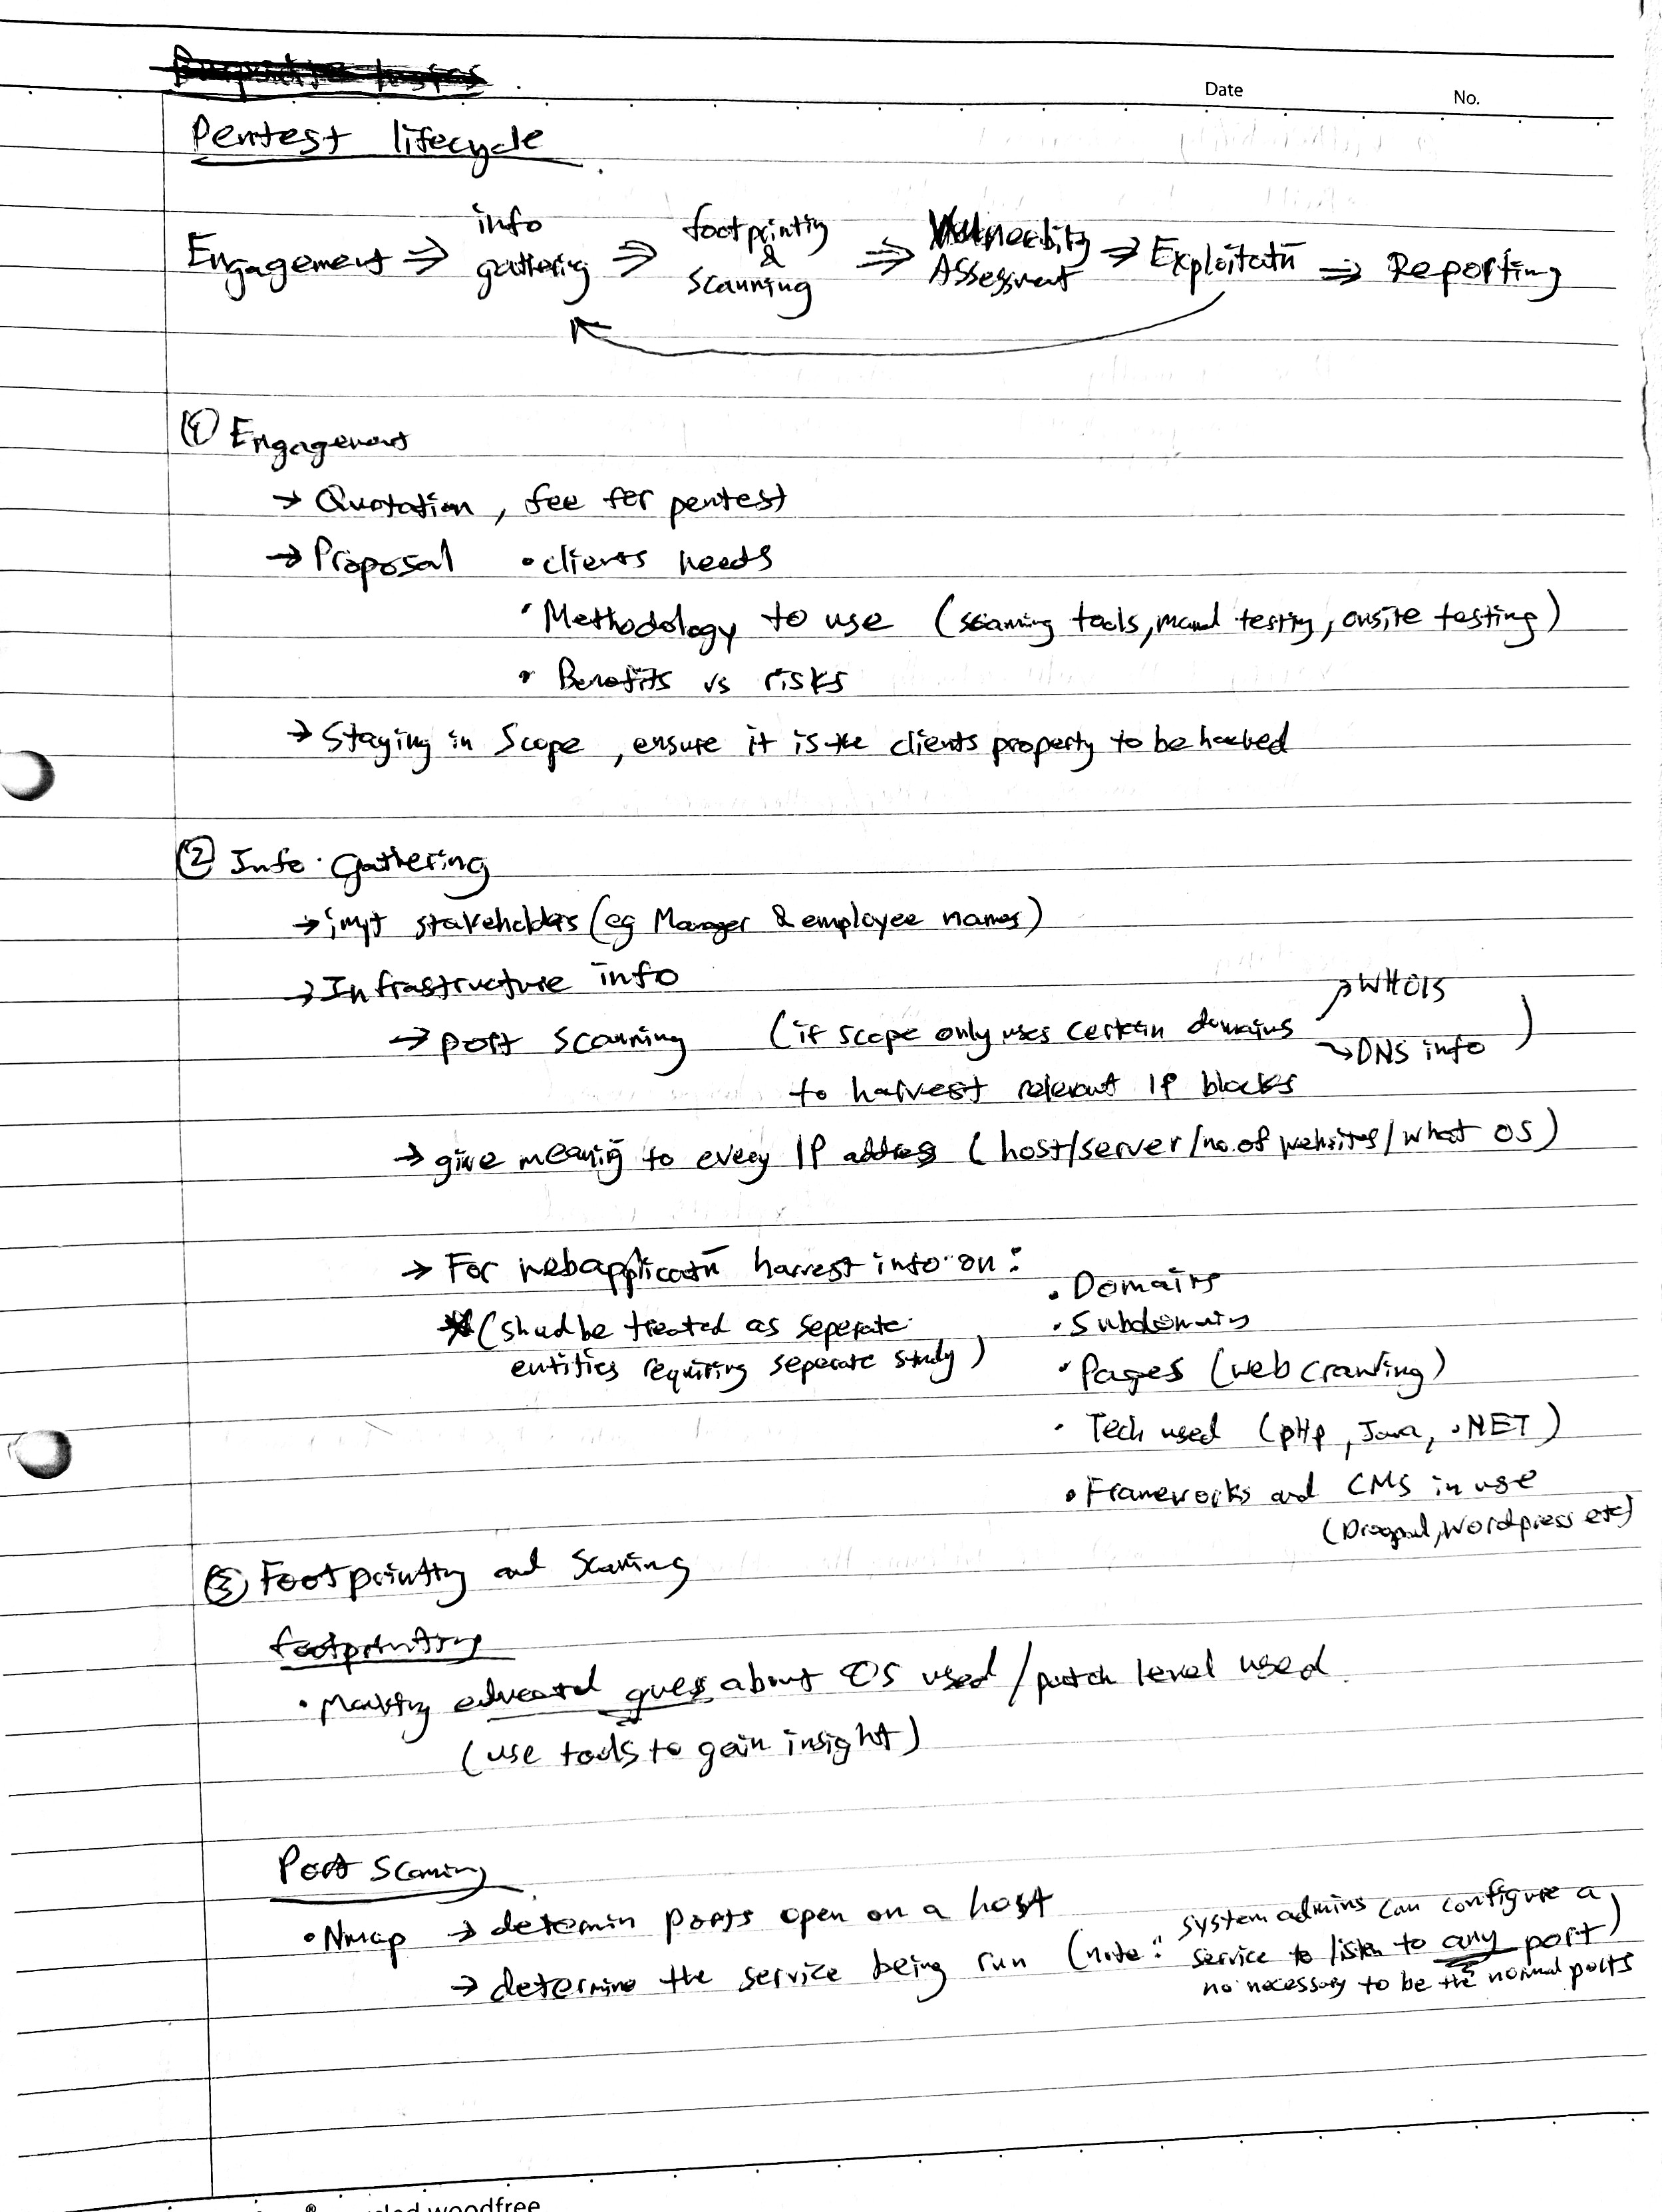 Date
No.
Pentest lifecycle
Engagement ⇒ info gathering ⇒ footprinting & scanning ⇒ Vulnerability Assessment ⇒ Exploitatn ⇒ Reporting
① Engagement
→ Quotation, fee for pentest
→ Proposal • clients needs
• Methodology to use (scanning tools, manual testing, onsite testing)
• Benefits vs risks
→ Staying in scope, ensure it is the clients property to be hacked
② Info gathering
→ impt stakeholders (eg Manager & employee names)
→ Infrastructure info
→ port scanning (if scope only uses certain domains → WHOIS → DNS info)
to harvest relevant IP blocks
→ give meaning to every IP address (host/server/no. of websites/what OS)
→ For webapplicatn harvest info on:
• Domains
* (should be treated as seperate
• Subdomains
entities requiring seperate study)
• Pages (web crawling)
• Tech used (pHp, Java, .NET)
• Frameworks and CMS in use
(Wordpress etc)
③ Footprinting and Scanning
footprinting
• Making educated guess about OS used / patch level used
(use tools to gain insight)
Port Scanning
• Nmap → determin ports open on a host
→ determine the service being run (note: system admins can configure a
service to listen to any port)
no necessary to be the normal ports
woodfree